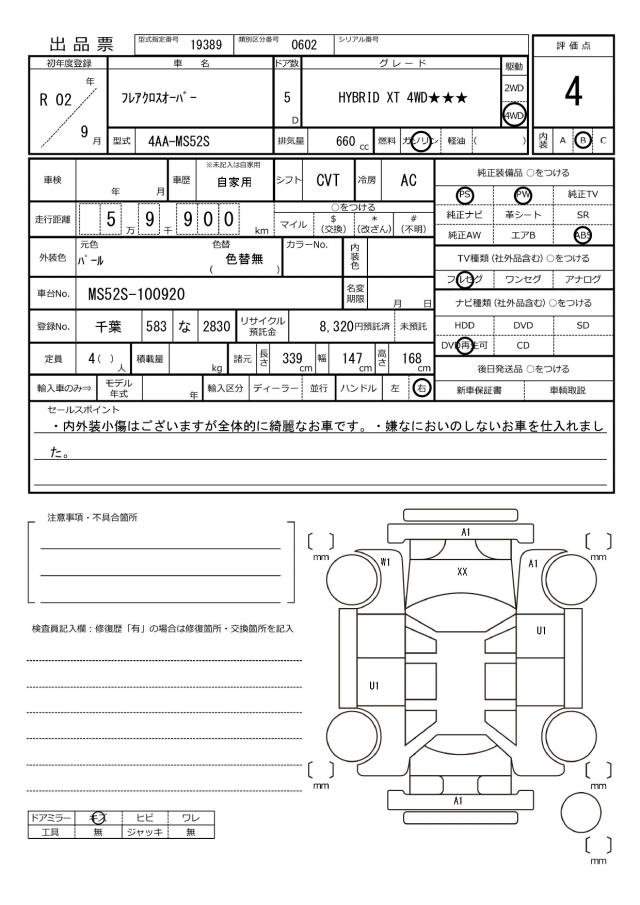 出品票 型式指定番号 19389 類別区分番号 0602 シリアル番号
評価点
4
内装 A B C
初年度登録 車名 ドア数 グレード 駆動
R 02 年 9 月
フレアクロスオーバー 5 D HYBRID XT 4WD★★★ 2WD 4WD
型式 4AA-MS52S 排気量 660 cc 燃料 ガソリン 軽油 ( )
車検 年 月 車歴 ※未記入は自家用 自家用 シフト CVT 冷房 AC
走行距離 5 万 9 千 9 0 0 km ○をつける
マイル $ (交換) * (改ざん) # (不明)
外装色 元色 パール 色替 ( 色替無 ) カラーNo. 内装色
車台No. MS52S-100920 名変期限 月 日
登録No. 千葉 583 な 2830 リサイクル預託金 8,320円預託済 未預託
定員 4( )人 積載量 kg 諸元 長さ 339 cm 幅 147 cm 高さ 168 cm
輸入車のみ⇒ モデル年式 年 輸入区分 ディーラー 並行 ハンドル 左 右
純正装備品 ○をつける
PS PW 純正TV
純正ナビ 革シート SR
純正AW エアB ABS
TV種類(社外品含む) ○をつける
フルセグ ワンセグ アナログ
ナビ種類(社外品含む) ○をつける
HDD DVD SD
DVD再生可 CD
後日発送品 ○をつける
新車保証書 車輌取説
セールスポイント
・内外装小傷はございますが全体的に綺麗なお車です。・嫌なにおいのしないお車を仕入れまし
た。
注意事項・不具合箇所
検査員記入欄：修復歴「有」の場合は修復箇所・交換箇所を記入
ドアミラー キズ ヒビ ワレ
工具 無 ジャッキ 無
A1
[ ] mm
[ ] mm
W1
A1
XX
U1
U1
[ ] mm
[ ] mm
A1
[ ] mm